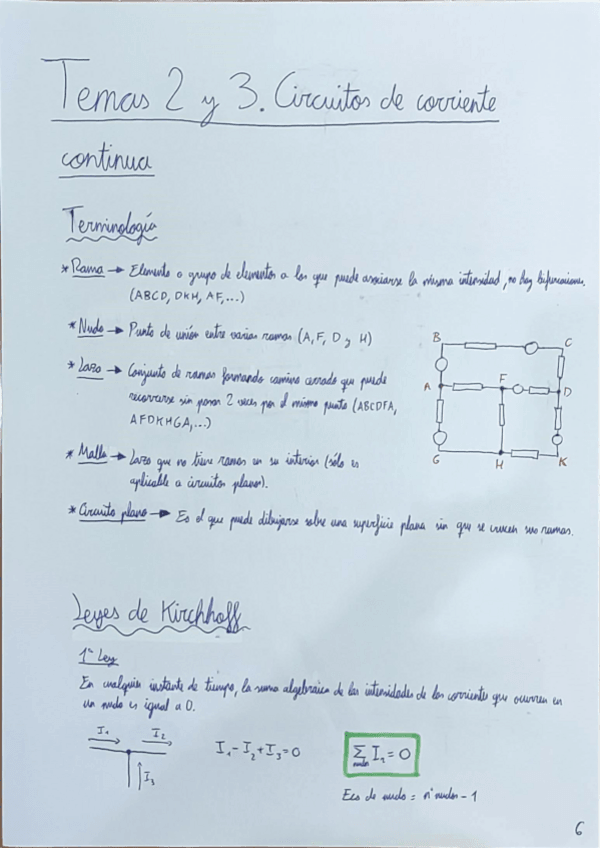 Temas 2 y 3. Circuitos de corriente
continua
Terminología
* Rama → Elemento o grupo de elementos a los que puede asociarse la misma intensidad, no hay bifurcaciones.
(ABCD, DKH, AF,...)
* Nudo → Punto de unión entre varias ramas (A, F, D y H)
* Lazo → Conjunto de ramas formando camino cerrado que puede
recorrerse sin pasar 2 veces por el mismo punto (ABCDFA,
AFDKHGA,...)
* Malla → Lazo que no tiene ramas en su interior (sólo es
aplicable a circuitos planos).
* Circuito plano → Es el que puede dibujarse sobre una superficie plana sin que se crucen sus ramas.
B C
A F D
G H K
Leyes de Kirchhoff
1ª Ley
En cualquier instante de tiempo, la suma algebraica de las intensidades de las corrientes que ocurren en
un nudo es igual a 0.
I₁ I₂
I₃
I₁-I₂+I₃=0
∑ I₁ = 0
nudo
Ecs de nudo = nº nudos - 1
6